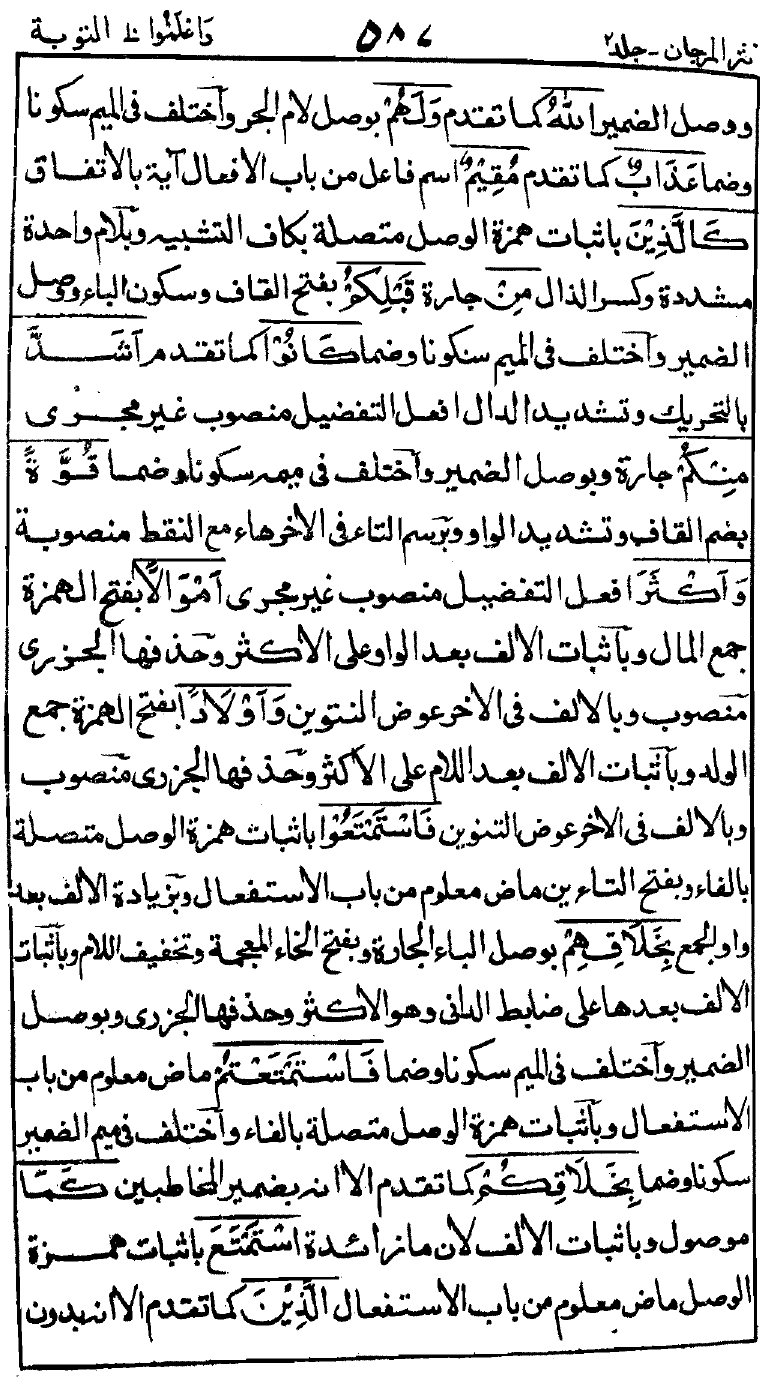 نثر المرجان - جلد ٢ ٥٨٧ واعلموا ۱۰ التوبة
ووصل الضمير اللهُ كما تقدم وَلَهُمْ بوصل لام الجر وٱختلف فى الميم سكونا
وضما عَذَابٌ كما تقدم مُقِيْمٌ اسم فاعل من باب الافعال آية بالاتفاق
كَالَّذِيْنَ باثبات همزة الوصل متصلة بكاف التشبيه وبلام واحدة
مشددة وكسر الذال مِنْ جارة قَبْلِكُمْ بفتح القاف وسكون الباء ووصل
الضمير وٱختلف فى الميم سكونا وضما كَانُوْا كما تقدم اَشَدَّ
بالتحريك وتشديد الدال افعل التفضيل منصوب غير مجرى
مِنْكُمْ جارة وبوصل الضمير وٱختلف فى ميمه سكونا وضما قُوَّةً
بضم القاف وتشديد الواو وبرسم التاء فى الاخر هاء مع النقط منصوبة
وَاَكْثَرَ افعل التفضيل منصوب غير مجرى اَمْوَالًا بفتح الهمزة
جمع المال وباثبات الالف بعد الواو على الاكثر وحذفها الجزرى
منصوب وبالالف فى الاخر عوض التنوين وَاَوْلَادًا بفتح الهمزة جمع
الولد وباثبات الالف بعد اللام على الاكثر وحذفها الجزرى منصوب
وبالالف فى الاخر عوض التنوين فَاسْتَمْتَعُوْا باثبات همزة الوصل متصلة
بالفاء وبفتح التاءين ماض معلوم من باب الاستفعال وبزيادة الالف بعد
واو الجمع بِخَلَاقِهِمْ بوصل الباء الجارة وبفتح الخاء المعجمة وتخفيف اللام وباثبات
الالف بعدها على ضابط الدانى وهو الاكثر وحذفها الجزرى وبوصل
الضمير وٱختلف فى الميم سكونا وضما فَاسْتَمْتَعْتُمْ ماض معلوم من باب
الاستفعال وباثبات همزة الوصل متصلة بالفاء وٱختلف فى ميم الضمير
سكونا وضما بِخَلَاقِكُمْ كما تقدم الا انه بضمير المخاطبين كَمَا
موصول وباثبات الالف لان ما زائدة اسْتَمْتَعَ باثبات همزة
الوصل ماض معلوم من باب الاستفعال الَّذِيْنَ كما تقدم الا انه بدون